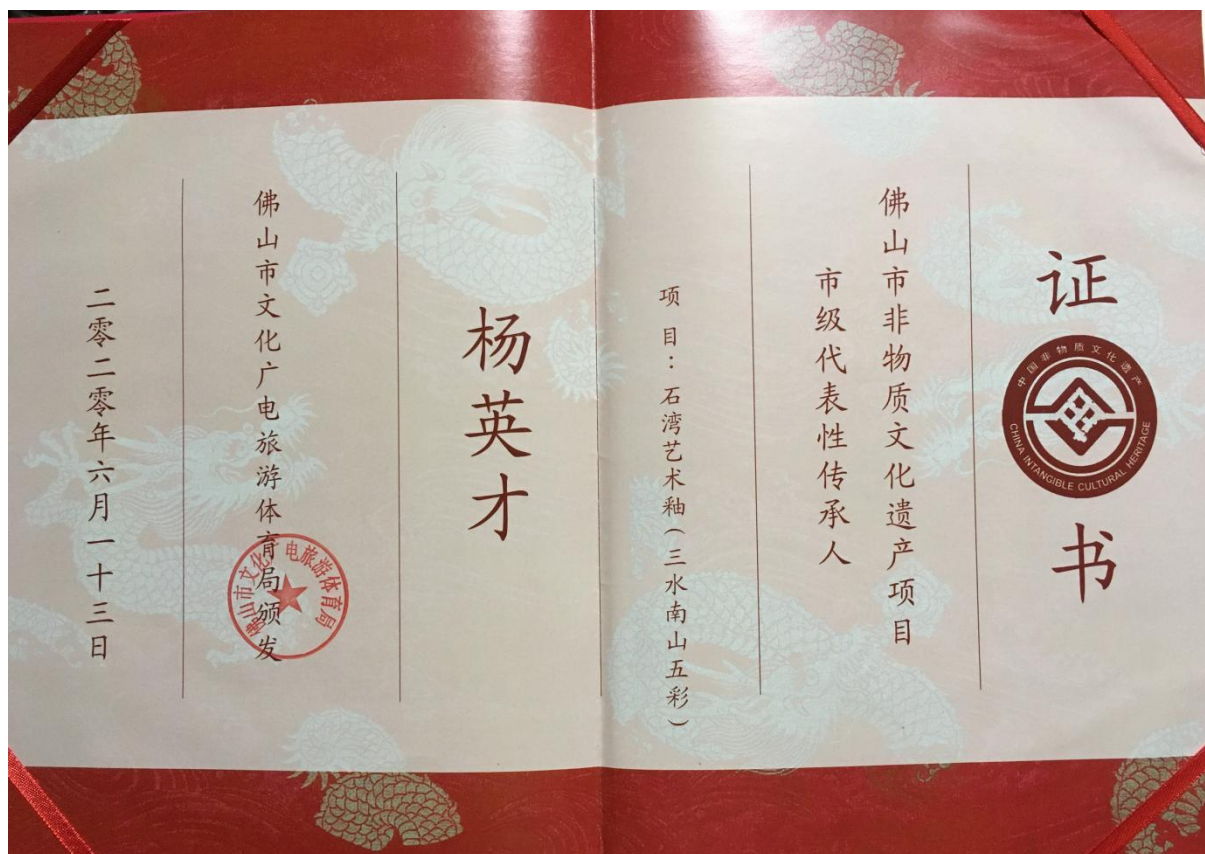 证
中国非物质文化遗产
CHINA INTANGIBLE CULTURAL HERITAGE
书
佛山市非物质文化遗产项目
市级代表性传承人
项目：石湾艺术釉（三水南山五彩）
杨英才
佛山市文化广电旅游体育局颁发
佛山市文化广电旅游体育局
二零二零年六月一十三日